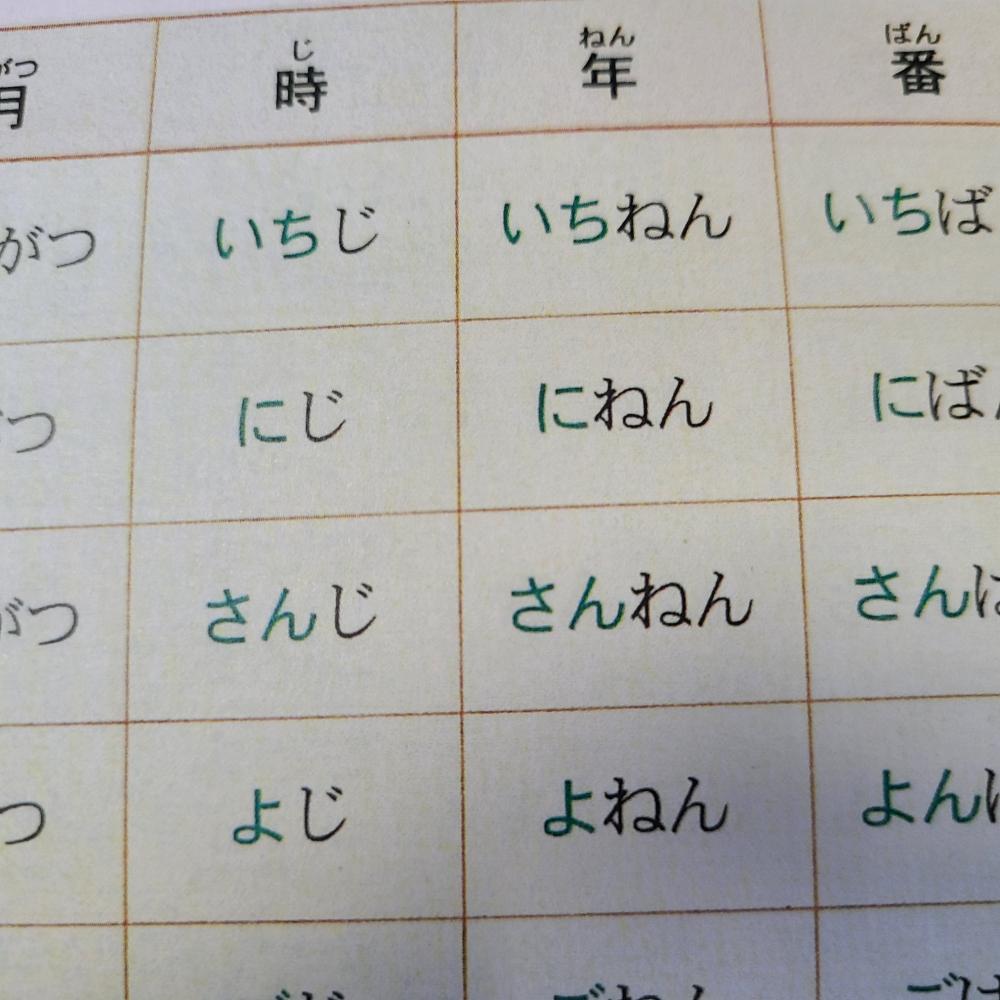 がつ じ ねん ばん
月 時 年 番
がつ いちじ いちねん いちば
つ にじ にねん にば
がつ さんじ さんねん さん
つ よじ よねん よん